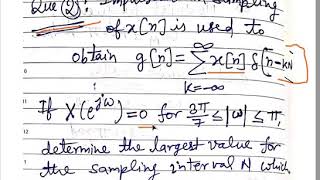 Que (2): Impulse train sampling
of x[n] is used to
obtain g[n] = ∑ x[n] δ[n-kN]
∞
k=-∞
If X(e^jω) = 0 for 3π/7 ≤ |ω| ≤ π,
determine the largest value for
the sampling interval N which